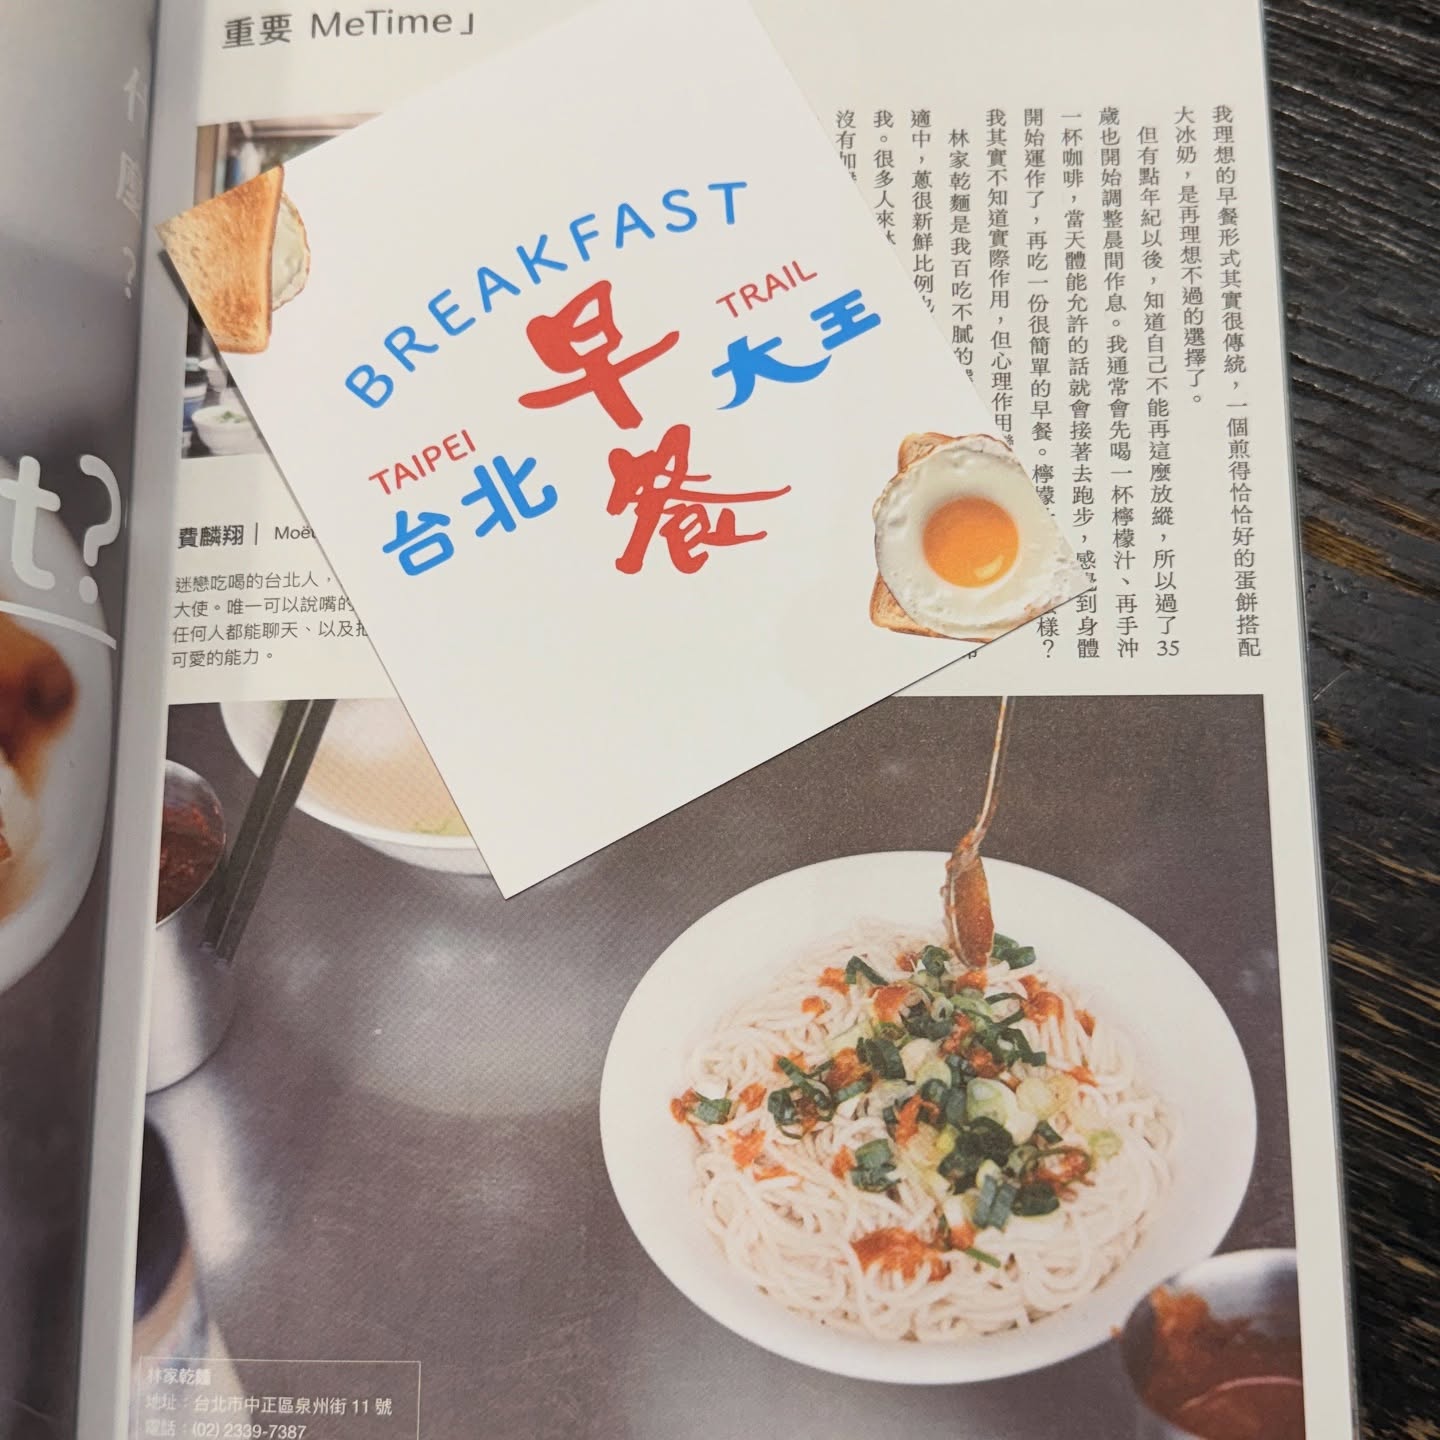 重要 MeTime」
BREAKFAST
TRAIL
大王
早餐
TAIPEI
台北
我理想的早餐形式其實很傳統，一個煎得恰恰好的蛋餅搭配
大冰奶，是再理想不過的選擇了。
但有點年紀以後，知道自己不能再這麼放縱，所以過了35
歲也開始調整晨間作息。我通常會先喝一杯檸檬汁、再手沖
一杯咖啡，當天體能允許的話就會接著去跑步，感覺到身體
開始運作了，再吃一份很簡單的早餐。檸檬
樣？
我其實不知道實際作用，但心理作用
林家乾麵是我百吃不膩的
適中，蔥很新鮮比例也
我。很多人來
沒有加
費麟翔｜ Moë
迷戀吃喝的台北人，
大使。唯一可以說嘴的
任何人都能聊天、以及
可愛的能力。
t?
林家乾麵
地址：台北市中正區泉州街 11 號
電話：(02) 2339-7387